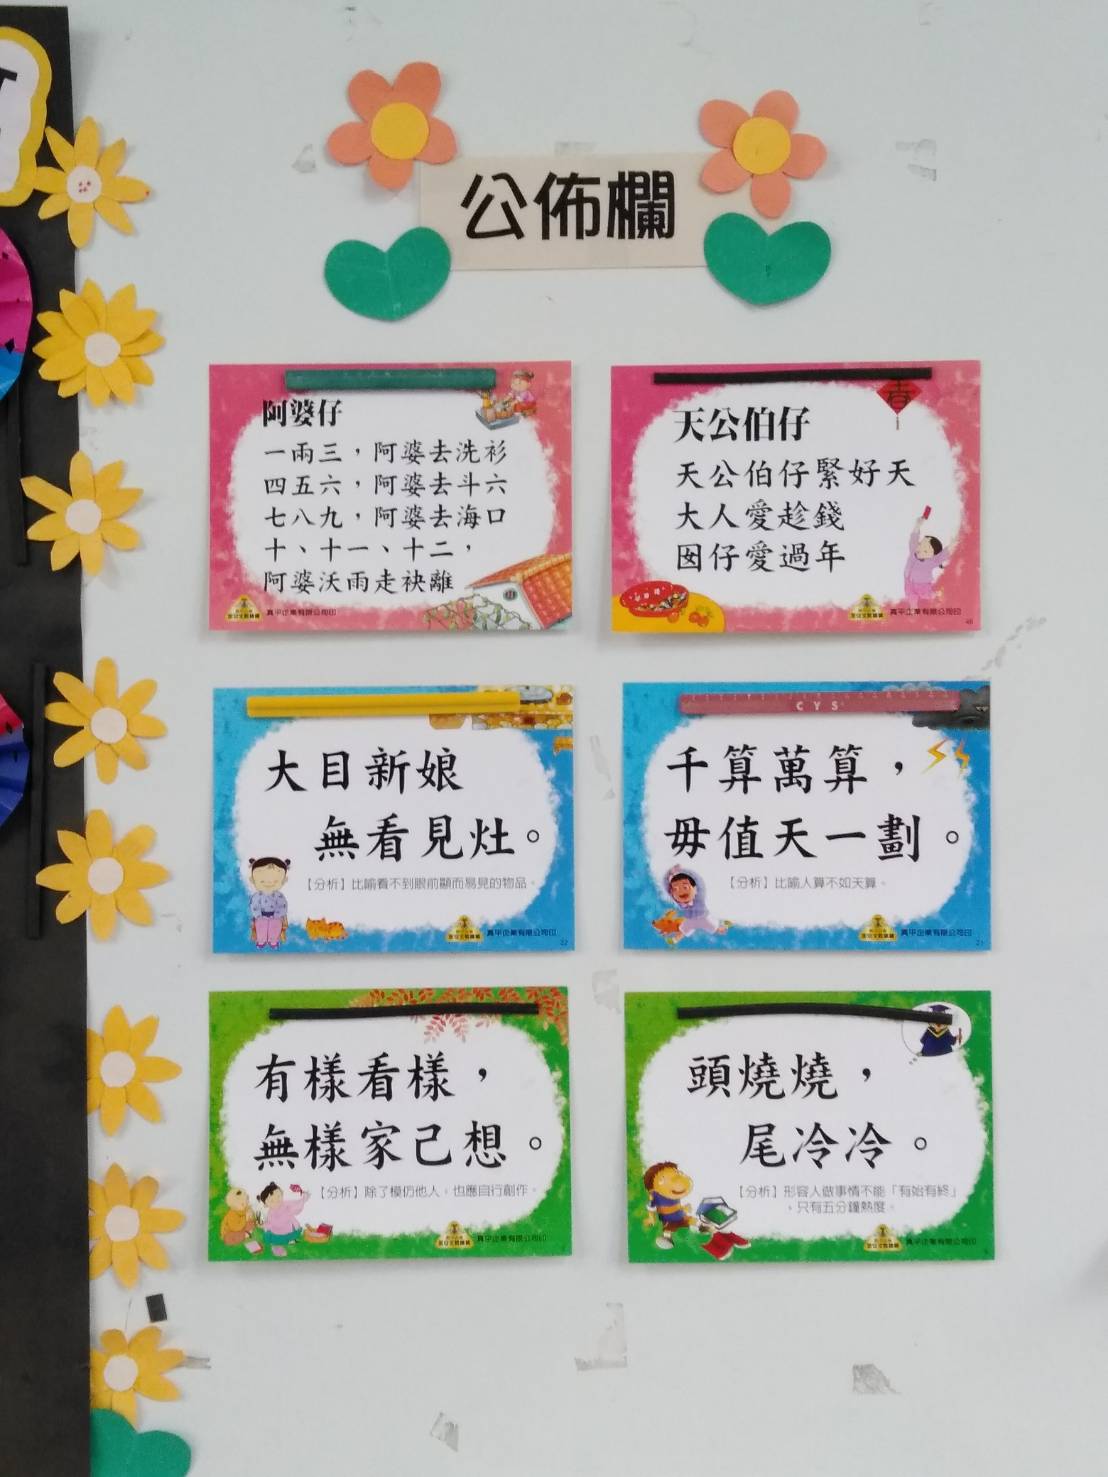 公佈欄
阿婆仔
一兩三，阿婆去洗衫
四五六，阿婆去斗六
七八九，阿婆去海口
十、十一、十二，
阿婆沃雨走袂離
真平企業有限公司印
天公伯仔
天公伯仔緊好天
大人愛趁錢
囡仔愛過年
真平企業有限公司印
46
大目新娘
無看見灶。
【分析】比喻看不到眼前顯而易見的物品。
真平企業有限公司印
22
CYS
千算萬算，
毋值天一劃。
【分析】比喻人算不如天算。
真平企業有限公司印
21
有樣看樣，
無樣家己想。
【分析】除了模仿他人，也應自行創作。
真平企業有限公司印
頭燒燒，
尾冷冷。
【分析】形容人做事情不能「有始有終」
，只有五分鐘熱度。
真平企業有限公司印